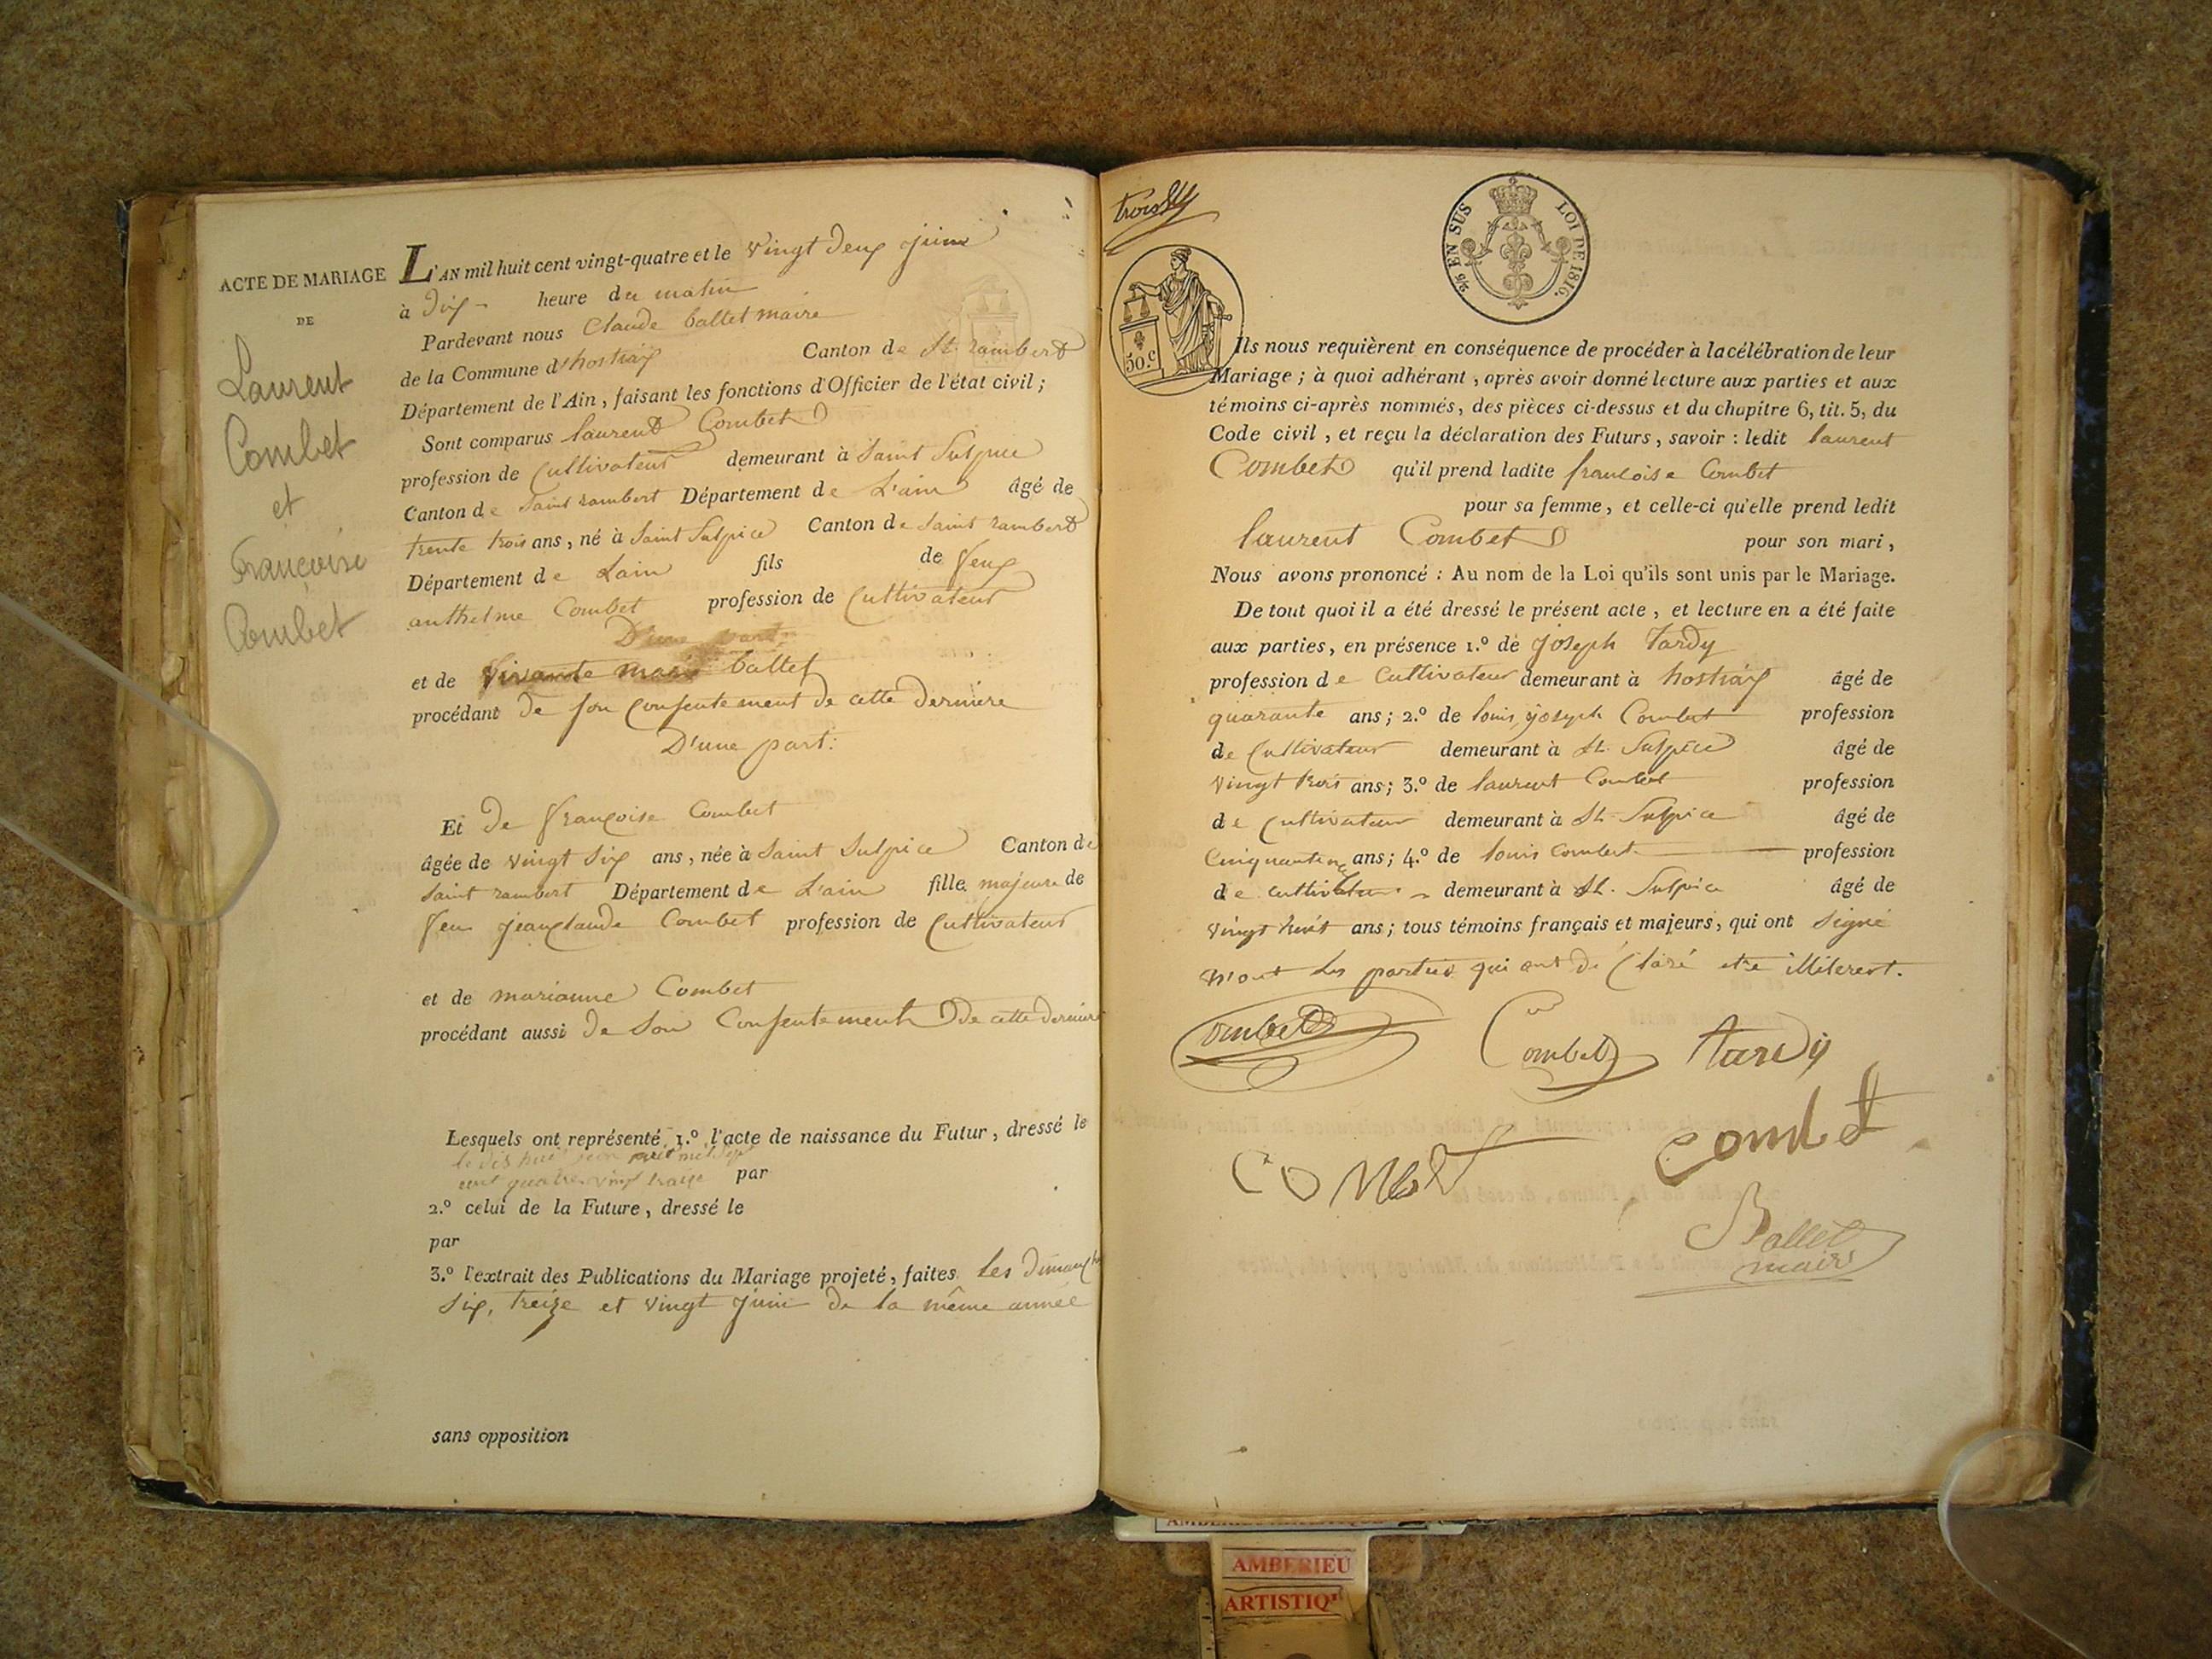 ACTE DE MARIAGE
DE
Laurent
Combet
et
Françoise
Combet
L'AN mil huit cent vingt-quatre et le vingt deux juin
à dix heure du matin
Pardevant nous Claude ballet maire
de la Commune d'hostiaz Canton de St. rambert
Département de l'Ain, faisant les fonctions d'Officier de l'état civil;
Sont comparus laurent Combet
profession de Cultivateur demeurant à Saint Sulpice
Canton de Saint rambert Département de L'ain âgé de
trente trois ans, né à Saint Sulpice Canton de Saint rambert
Département de Lain fils de feux
anthelme Combet profession de Cultivateur
D'une part
et de vivante marie ballet
procédant de son Consentement de cette derniere
D'une part:
Et de françoise Combet
âgée de vingt six ans, née à Saint Sulpice Canton de
Saint rambert Département de L'ain fille majeure de
feu jeanclaude Combet profession de Cultivateur
et de marianne Combet
procédant aussi de son Consentement De cette derniere
Lesquels ont représenté, 1.º l'acte de naissance du Futur, dressé le
le dix huit mil sept
cent quatre vingt par
2.º celui de la Future, dressé le
par
3.º l'extrait des Publications du Mariage projeté, faites les dimanche
six, treize et vingt juin de la même année
sans opposition
2/5 EN SUS LOI DE 1816.
50.c
Ils nous requièrent en conséquence de procéder à la célébration de leur
Mariage; à quoi adhérant, après avoir donné lecture aux parties et aux
témoins ci-après nommés, des pièces ci-dessus et du chapitre 6, tit. 5, du
Code civil, et reçu la déclaration des Futurs, savoir: ledit laurent
Combet qu'il prend ladite francoise Combet
pour sa femme, et celle-ci qu'elle prend ledit
laurent Combet pour son mari,
Nous avons prononcé: Au nom de la Loi qu'ils sont unis par le Mariage.
De tout quoi il a été dressé le présent acte, et lecture en a été faite
aux parties, en présence 1.º de joseph Tardy
profession de Cultivateur demeurant à hostiaz âgé de
quarante ans; 2.º de louis joseph Combet profession
de Cultivateur demeurant à St. Sulpice âgé de
vingt trois ans; 3.º de laurent Combet profession
de Cultivateur demeurant à St. Sulpice âgé de
Cinquante ans; 4.º de louis Combet profession
de cultivateur demeurant à St. Sulpice âgé de
vingt huit ans; tous témoins français et majeurs, qui ont signé
n'ont les parties qui ont déclaré etre illiterest.
Combet
Combet
tardy
comBet
combet
Ballet
maire
AMBERIEU
ARTISTIQ